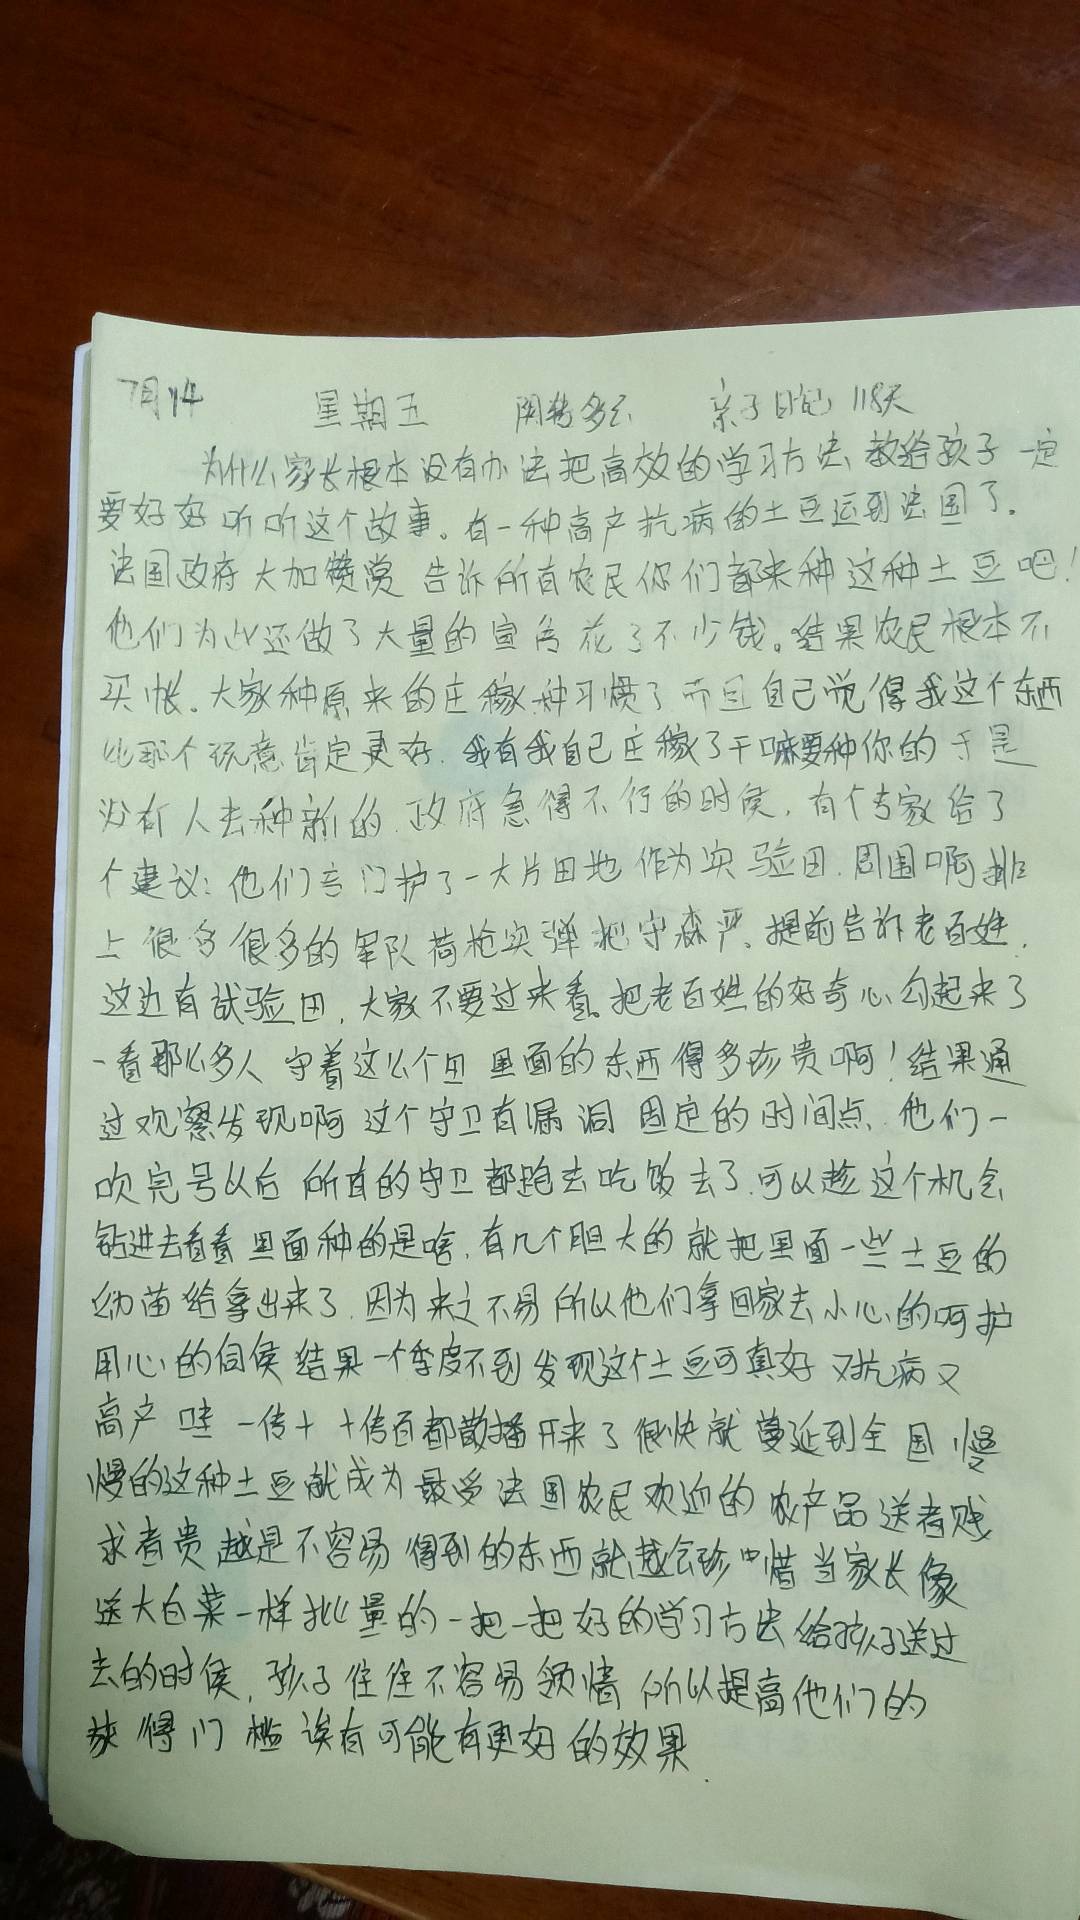 7月14 星期五 阴转多云 亲子日记 118天
为什么家长根本没有办法把高效的学习方法教给孩子 一定
要好好听听这个故事。有一种高产抗病的土豆运到法国了.
法国政府大加赞赏 告诉所有农民你们都来种这种土豆吧!
他们为此还做了大量的宣传 花了不少钱。结果农民根本不
买帐.大家种原来的庄稼种习惯了 而且自己觉得我这个东西
比那个玩意肯定更好.我有我自己庄稼了干嘛要种你的 于是
没有人去种新的.政府急得不行的时候,有个专家给了
个建议:他们专门护了一大片田地 作为实验田.周围啊排
上很多很多的军队荷枪实弹把守森严、提前告诉老百姓.
这边有试验田,大家不要过来看。把老百姓的好奇心勾起来了
一看那么多人 守着这么个田 里面的东西得多珍贵啊!结果通
过观察发现啊 这个守卫有漏洞 固定的时间点.他们一
吹完号以后 所有的守卫都跑去吃饭去了.可以趁这个机会
钻进去看看里面种的是啥.有几个胆大的就把里面一些土豆的
幼苗给拿出来了.因为来之不易所以他们拿回家去小心的呵护
用心的伺侯 结果一个季度不到发现这个土豆可真好 又抗病又
高产 哇 一传十 十传百都散播开来了 很快就蔓延到全国 慢
慢的这种土豆就成为最受法国农民欢迎的农产品 送者贱
求者贵 越是不容易得到的东西就越会珍惜 当家长像
送大白菜一样批量的一把一把好的学习方法给孩子送过
去的时侯,孩子往往不容易领情 所以提高他们的
获得门槛 诶有可能有更好的效果.